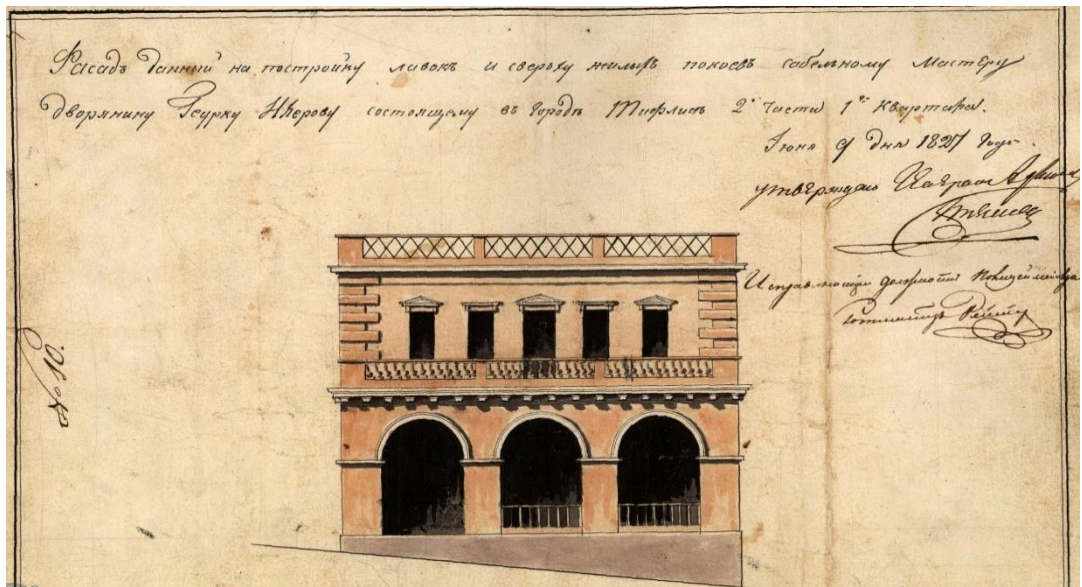 Фасадъ данный на постройку лавокъ и сверьху жилыхъ покоевъ сабельному мастеру
дворянину состоящему въ городѣ Тифлисѣ 2й части 1го квартала.
Июня 9 дня 1827 года.
утверждаю
Исправляющій должность Полицеймейстера
№ 10.